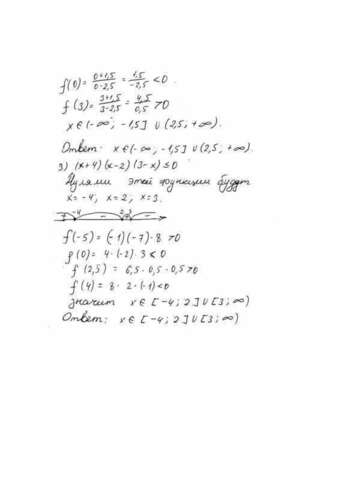 f(0) = (0+1,5)/(0-2,5) = 1,5/-2,5 < 0
f(3) = (3+1,5)/(3-2,5) = 4,5/0,5 > 0
x ∈ (-∞; -1,5] ∪ (2,5; +∞).
Ответ: x ∈ (-∞; -1,5] ∪ (2,5; +∞).
3) (x+4)(x-2)(3-x) ≤ 0
Нулями этой функции будут
x = -4; x = 2; x = 3.
+ -4 - 2 3 -
f(-5) = (-1)(-7)·8 > 0
f(0) = 4·(-2)·3 < 0
f(2,5) = 6,5·0,5·0,5 > 0
f(4) = 8·2·(-1) < 0
значит x ∈ [-4; 2] ∪ [3; ∞)
Ответ: x ∈ [-4; 2] ∪ [3; ∞)